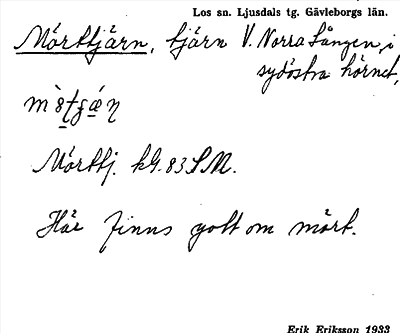 Los sn. Ljusdals tg. Gävleborgs län.
Mörttjärn, tjärn V. Norra Lången, i
sydöstra hörnet,
Mörttj. kG. 83 SM.
Här finns gott om mört.
Erik Eriksson 1933